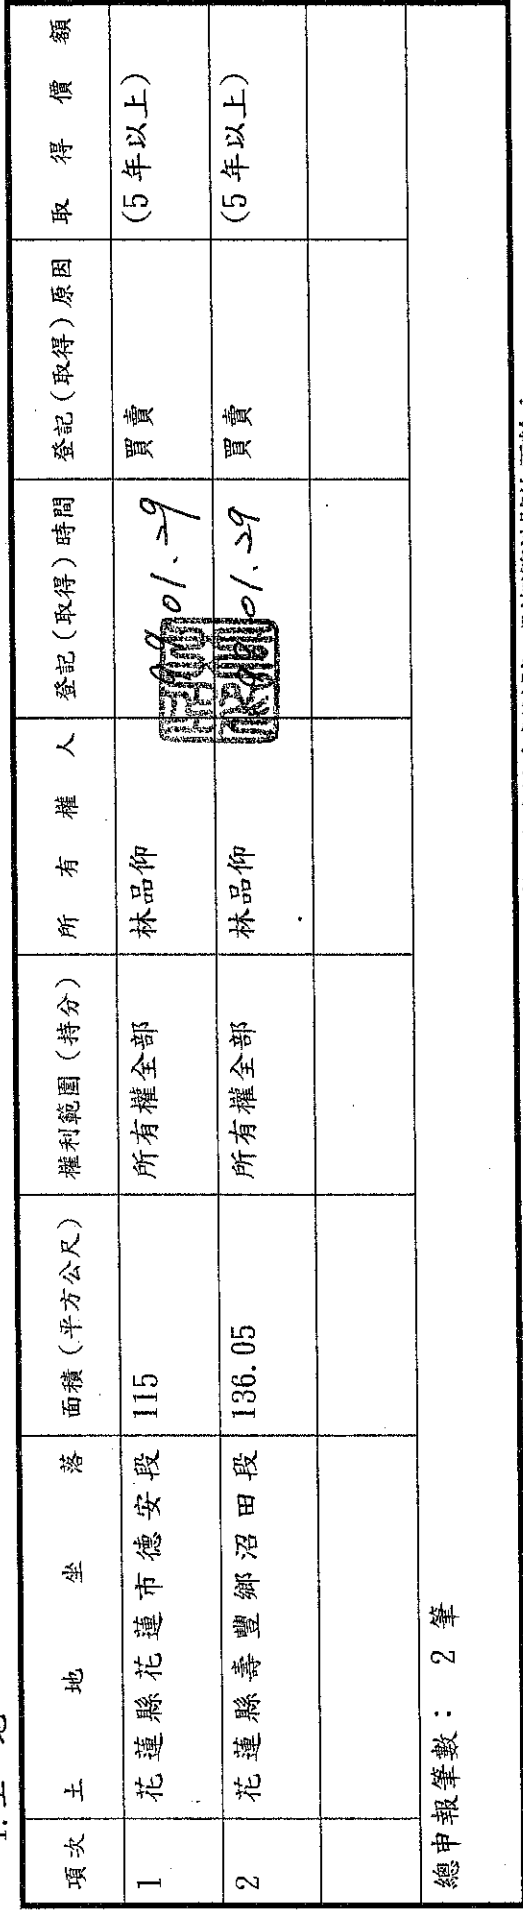 1.土 地
項次 土 地 坐 落 面積(平方公尺) 權利範圍(持分) 所 有 權 人 登記(取得)時間 登記(取得)原因 取 得 價 額
1 花蓮縣花蓮市德安段 115 所有權全部 林品仰 01.29 買賣 (5年以上)
2 花蓮縣壽豐鄉沼田段 136.05 所有權全部 林品仰 01.29 買賣 (5年以上)
總申報筆數: 2 筆